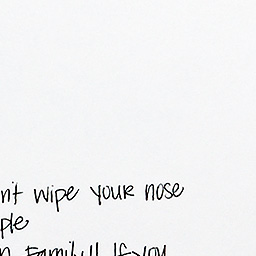 n't wipe your nose
ple
n Family!! If you